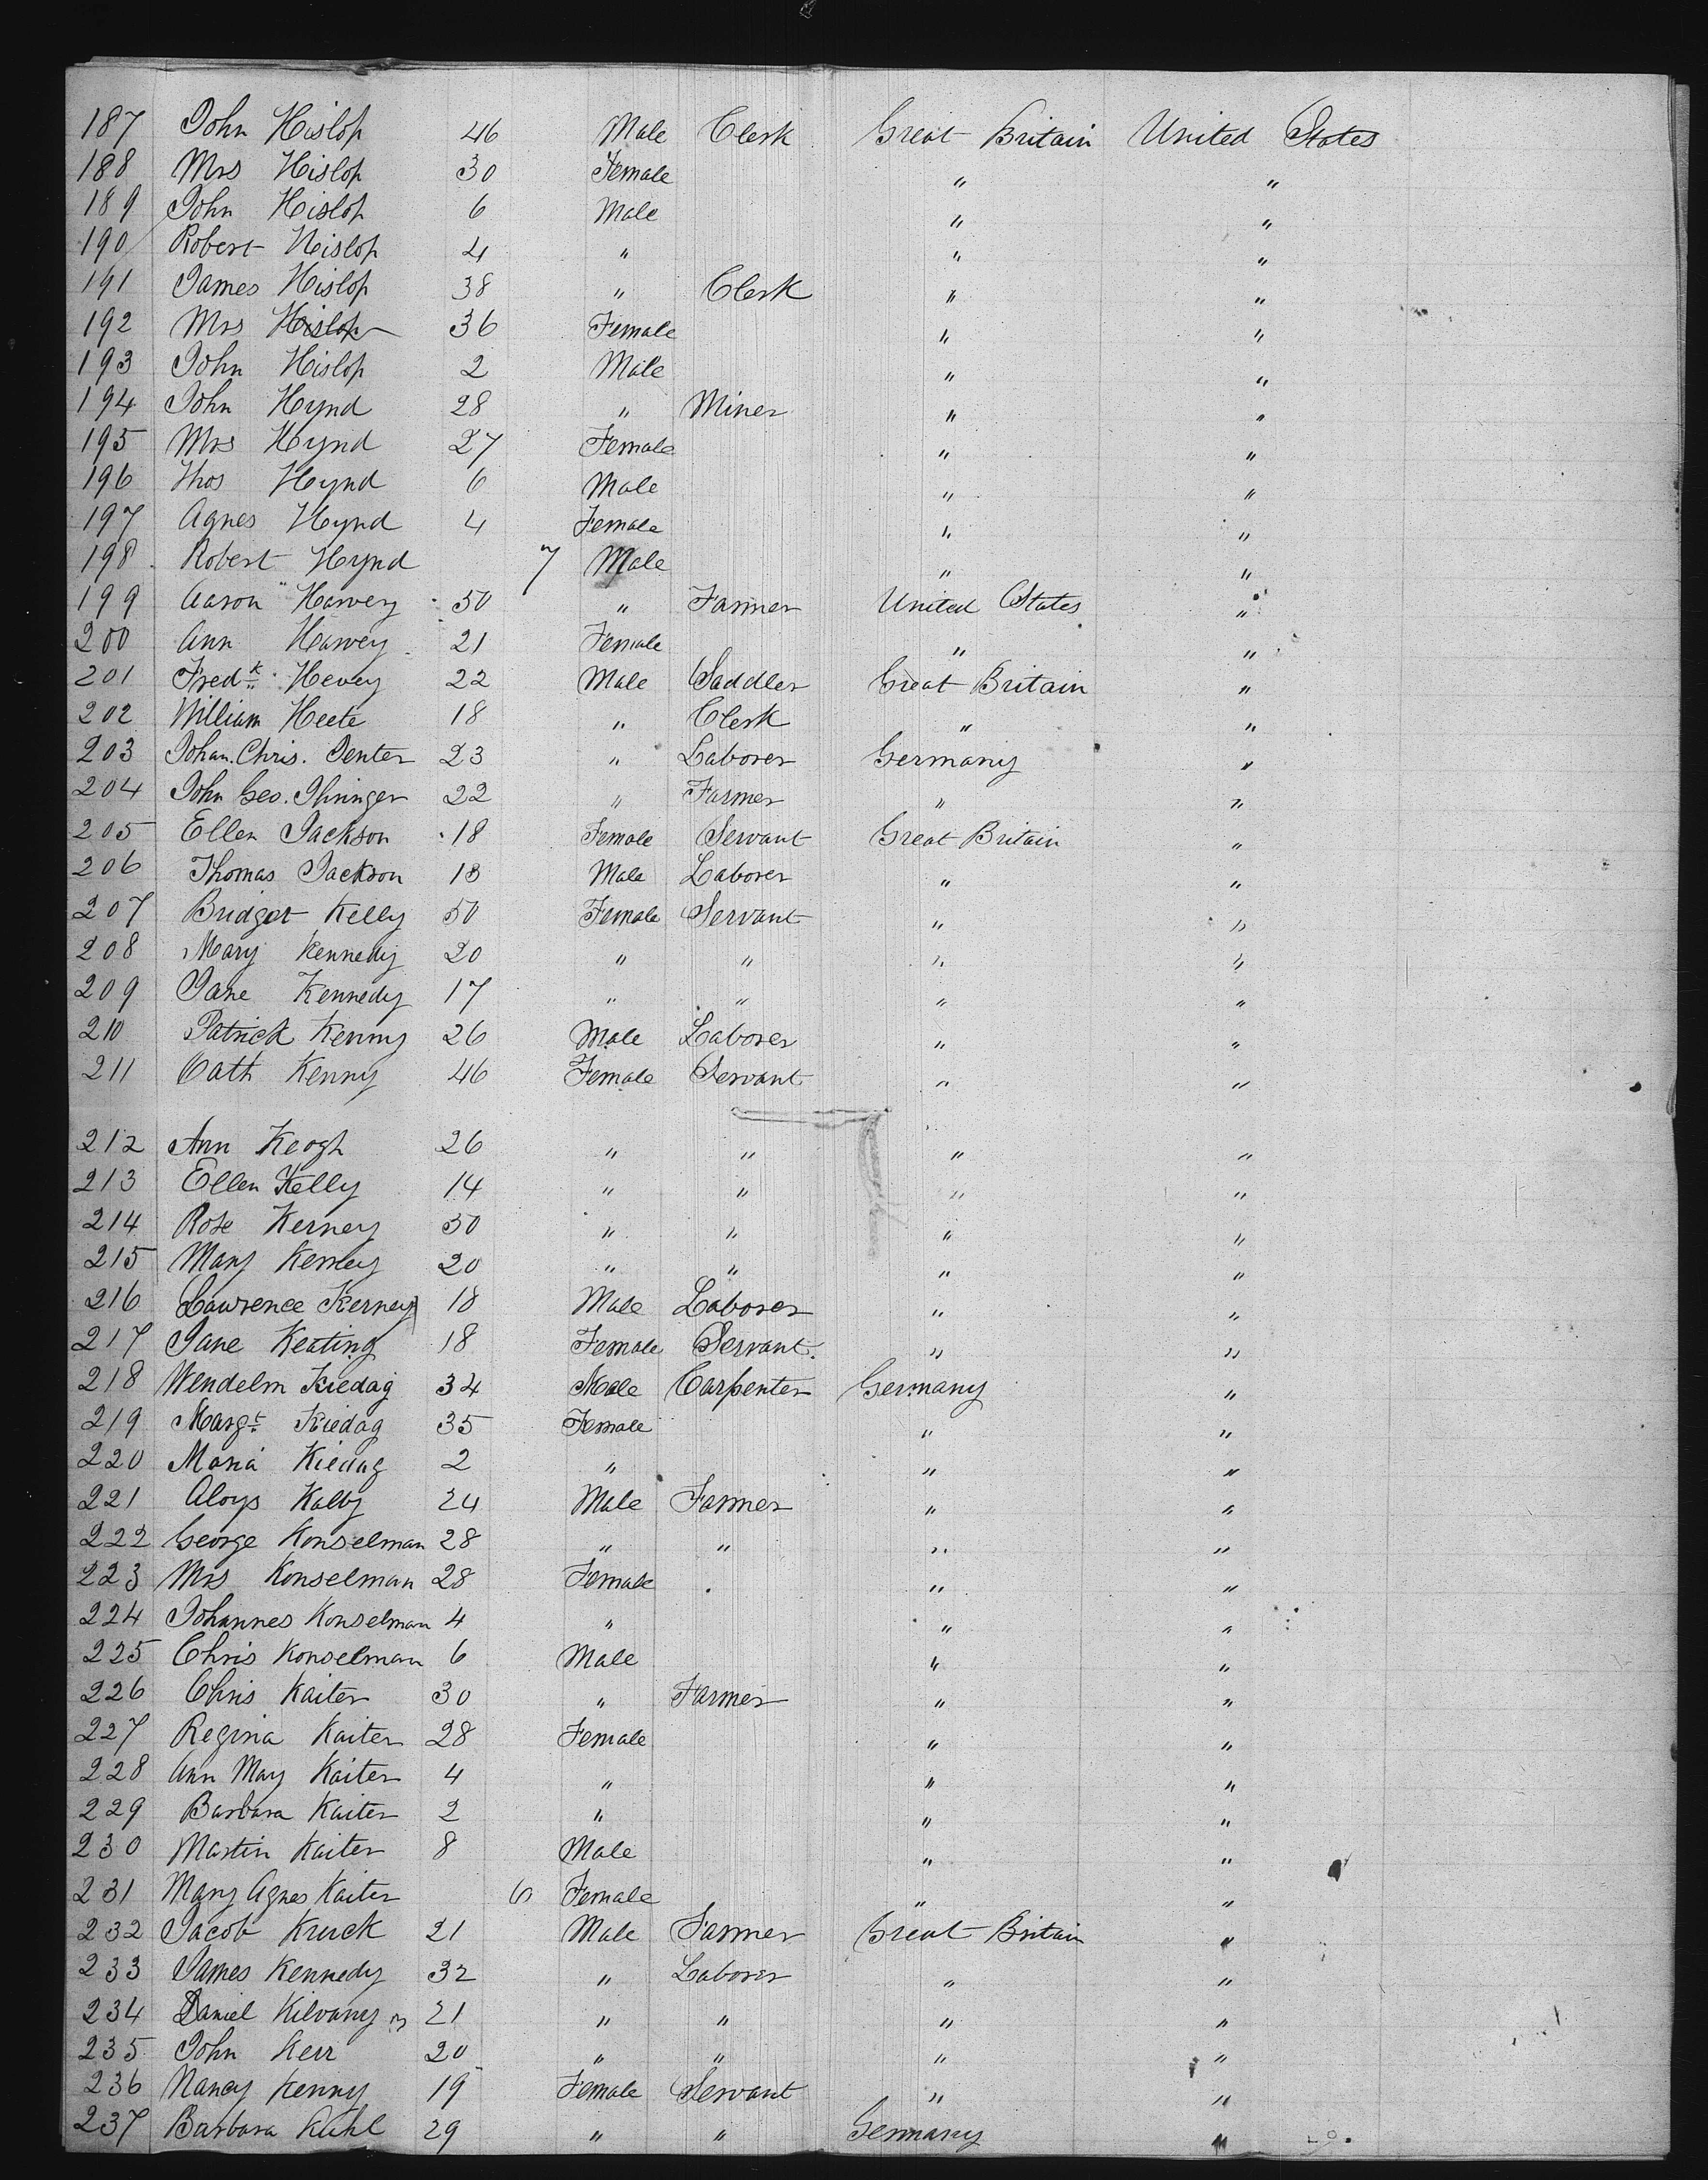 187 John Hislop 46 Male Clerk Great Britain United States
188 Mrs Hislop 30 Female " "
189 John Hislop 6 Male " "
190 Robert Hislop 4 " " "
191 James Hislop 38 " Clerk " "
192 Mrs Hislop 36 Female " "
193 John Hislop 2 Male " "
194 John Hynd 28 " Miner " "
195 Mrs Hynd 27 Female " "
196 Thos Hynd 6 Male " "
197 Agnes Hynd 4 Female " "
198 Robert Hynd 7 Male " "
199 Aaron Harvey 50 " Farmer United States "
200 Ann Harvey 21 Female " "
201 Fredk Hevey 22 Male Saddler Great Britain "
202 William Heete 18 " Clerk " "
203 Johan. Chris. Jenter 23 " Laborer Germany "
204 John Geo. Ihringer 22 " Farmer " "
205 Ellen Jackson 18 Female Servant Great Britain "
206 Thomas Jackson 13 Male Laborer " "
207 Bridget Kelly 50 Female Servant " "
208 Mary Kennedy 20 " " " "
209 Jane Kennedy 17 " " " "
210 Patrick Kenny 26 Male Laborer " "
211 Cath Kenny 46 Female Servant " "
212 Ann Keogh 26 " " " "
213 Ellen Kelly 14 " " " "
214 Rose Kerney 30 " " " "
215 Mary Kerney 20 " " " "
216 Lawrence Kerney 18 Male Laborer " "
217 Jane Keating 18 Female Servant " "
218 Wendelm Kiedag 34 Male Carpenter Germany "
219 Margt Kiedag 35 Female " "
220 Maria Kiedag 2 " " "
221 Aloys Kalby 24 Male Farmer " "
222 George Konselman 28 " " " "
223 Mrs Konselman 28 Female " "
224 Johannes Konselman 4 " " "
225 Chris Konselman 6 Male " "
226 Chris Kaiter 30 " Farmer " "
227 Regina Kaiter 28 Female " "
228 Ann May Kaiter 4 " " "
229 Barbara Kaiter 2 " " "
230 Martin Kaiter 8 Male " "
231 Mary Agnes Kaiter 6 Female " "
232 Jacob Kruck 21 Male Farmer Great Britain "
233 James Kennedy 32 " Laborer " "
234 Daniel Kilvany 21 " " " "
235 John Kerr 20 " " " "
236 Nancy Kenny 19 Female Servant " "
237 Barbara Kuhl 29 " " Germany "